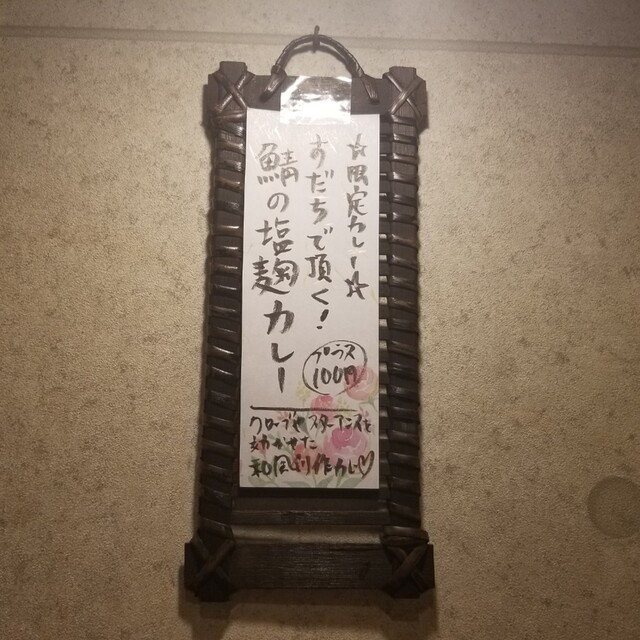 ☆限定カレー☆
すだちで頂く!
鯖の塩麹カレー
プラス
100円
クローブやスターアニスを
効かせた
和風創作カレー♡